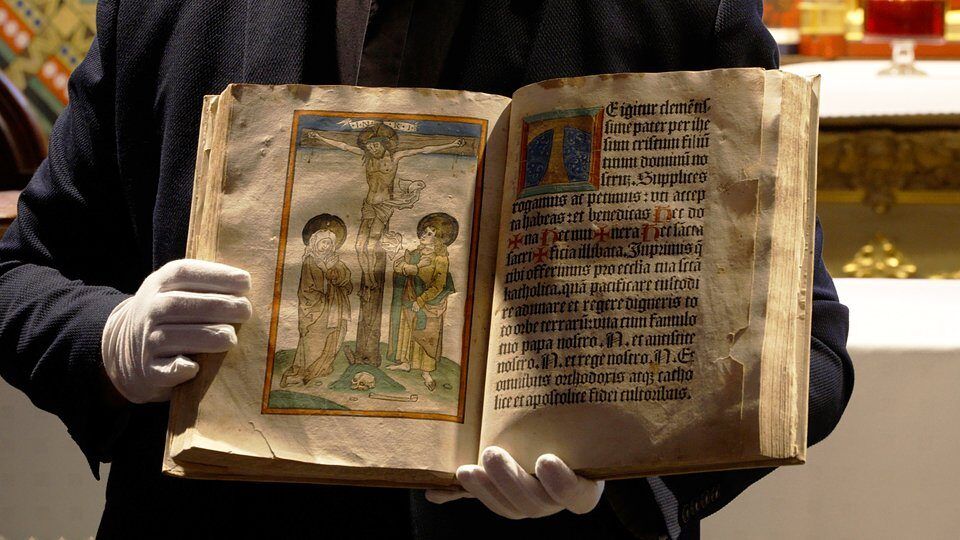 I·N·R·I
TE igitur clemẽtis
sime pater per ihe
sum cristum filiũ
tuum dominũ no
strũ. Supplices
rogamus ac petimus: vti accep
ta habeas: et benedicas Hec do
✠na Hec mu✠nera Hec sãcta
sacri✠ficia illibata. Inprimis q̃
tibi offerimus pro ecclia tua sctã
katholica. quã pacificare custodi
re adunare et regere digneris to
to orbe terrarũ: vna cum famulo
tuo papa nostro .N. et antistite
nostro .N. et rege nostro .N. Et
omnibus orthodoxis atqz catho
lice et apostolice fidei cultoribus.